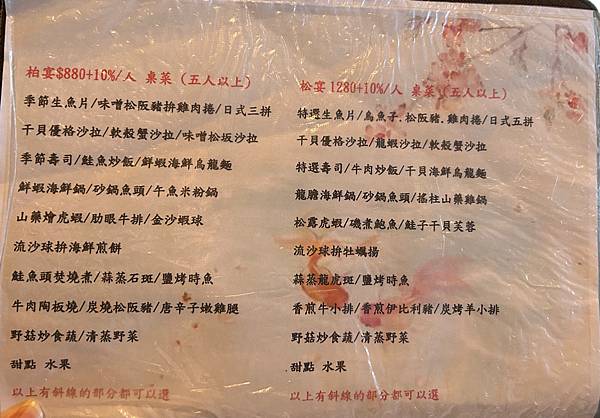 柏宴$880+10%/人 桌菜（五人以上）
季節生魚片/味噌松阪豬拼雞肉捲/日式三拼
干貝優格沙拉/軟殼蟹沙拉/味噌松坂沙拉
季節壽司/鮭魚炒飯/鮮蝦海鮮烏龍麵
鮮蝦海鮮鍋/砂鍋魚頭/午魚米粉鍋
山藥燴虎蝦/肋眼牛排/金沙蝦球
流沙球拼海鮮煎餅
鮭魚頭焚燒煮/蒜蒸石斑/鹽烤時魚
牛肉陶板燒/炭燒松阪豬/唐辛子嫩雞腿
野菇炒食蔬/清蒸野菜
甜點 水果
以上有斜線的部分都可以選
松宴 1280+10%/人 桌菜（五人以上）
特選生魚片/烏魚子.松阪豬.雞肉捲/日式五拼
干貝優格沙拉/龍蝦沙拉/軟殼蟹沙拉
特選壽司/牛肉炒飯/干貝海鮮烏龍麵
龍膽海鮮鍋/砂鍋魚頭/搖柱山藥雞鍋
松露虎蝦/磯煮鮑魚/鮭子干貝芙蓉
流沙球拼牡蠣揚
蒜蒸龍虎斑/鹽烤時魚
香煎牛小排/香煎伊比利豬/炭烤羊小排
野菇炒食蔬/清蒸野菜
.甜點 水果
以上有斜線的部分都可以選